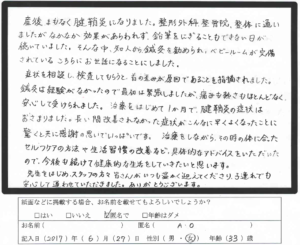 産後まもなく腱鞘炎になりました。整形外科や整骨院、整体に通い
ましたがなかなか効果があらわれず、鉛筆をにぎることもできない日が
続いていました。そんな中、知人から鍼灸を勧められ、ベビールームが完備
されているこちらにお世話になることにしました。
症状を相談し、検査してもらうと、首の歪みが原因であることを指摘されました。
鍼灸は経験がなかったので最初は緊張しましたが、痛さも熱さもほとんどなく、
安心して受けられました。治療をはじめて1か月で、腱鞘炎の症状は
おさまりました。長い間改善されなかった症状がこんなに早くよくなったことに
驚くと共に感謝の思いでいっぱいです。治療をしながら、その時の体に合った
セルフケアの方法や生活習慣の改善など、具体的なアドバイスをいただいた
ので、今後も続けて健康的な生活をしていきたいと思います。
先生をはじめ、スタッフの方々皆さんがいつも温かく迎えてくださり、子連れでも
安心して通わせていただきました。ありがとうございます。
紙面などに掲載する場合、お名前を載せてもよろしいでしょうか?
□はい □いいえ ☑匿名で □年齢はダメ
お名前( ) 匿名( A・O )
記入日(2017)年(6)月(29)日 性別(男・女) 年齢(33)歳